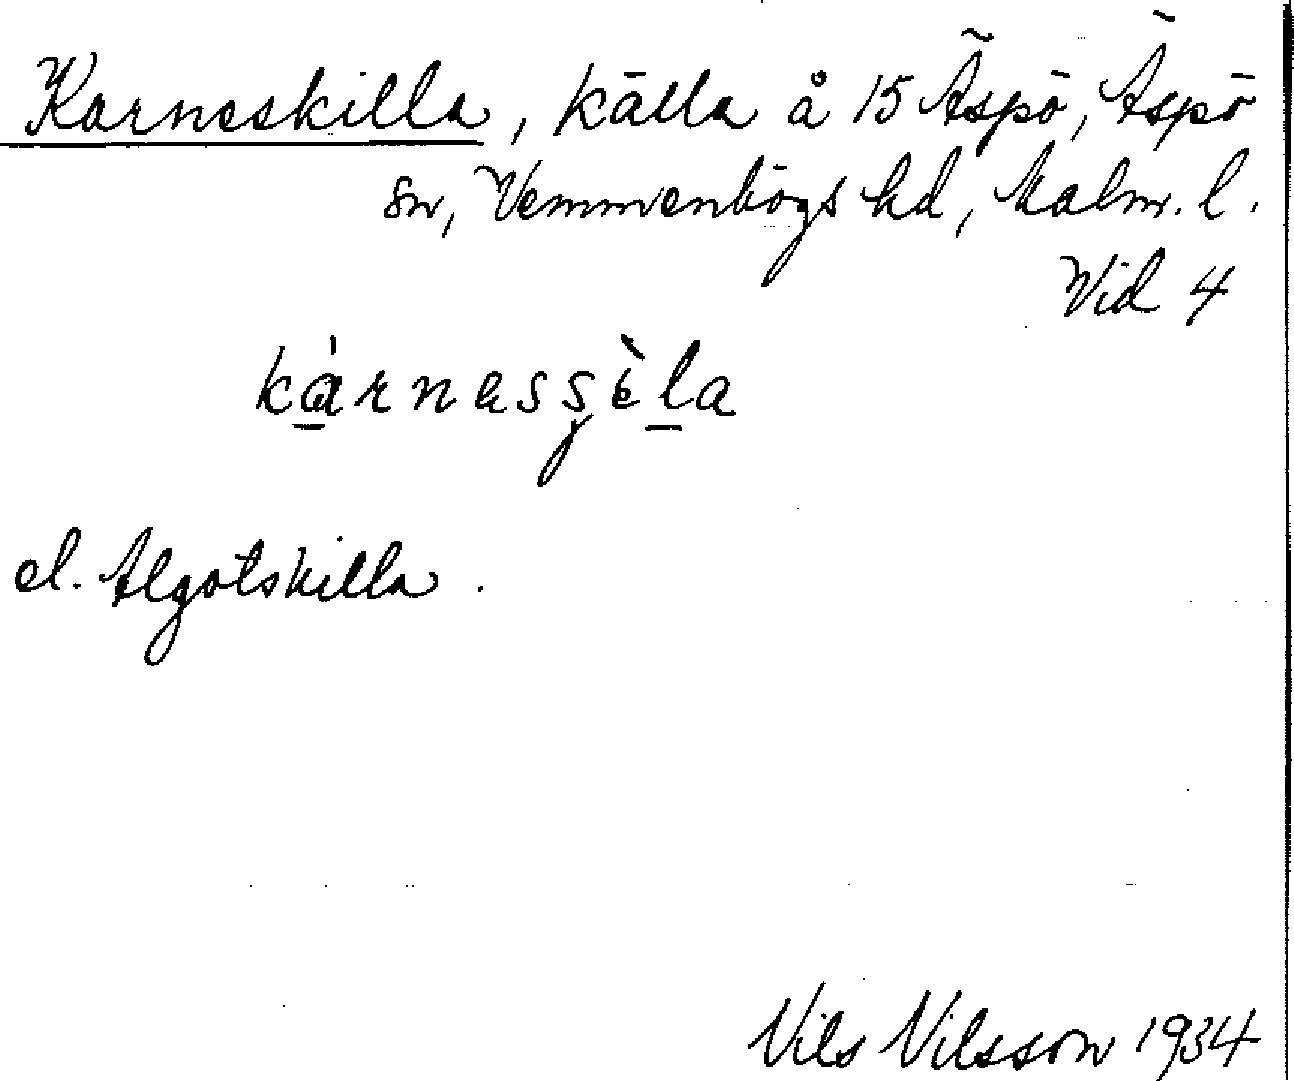 Karneskilla, källa å 15 Äspö, Äspö
sn, Vemmenhögs hd, Malm. l.
Vid 4
el. Algotskilla.
Nils Nilsson 1934